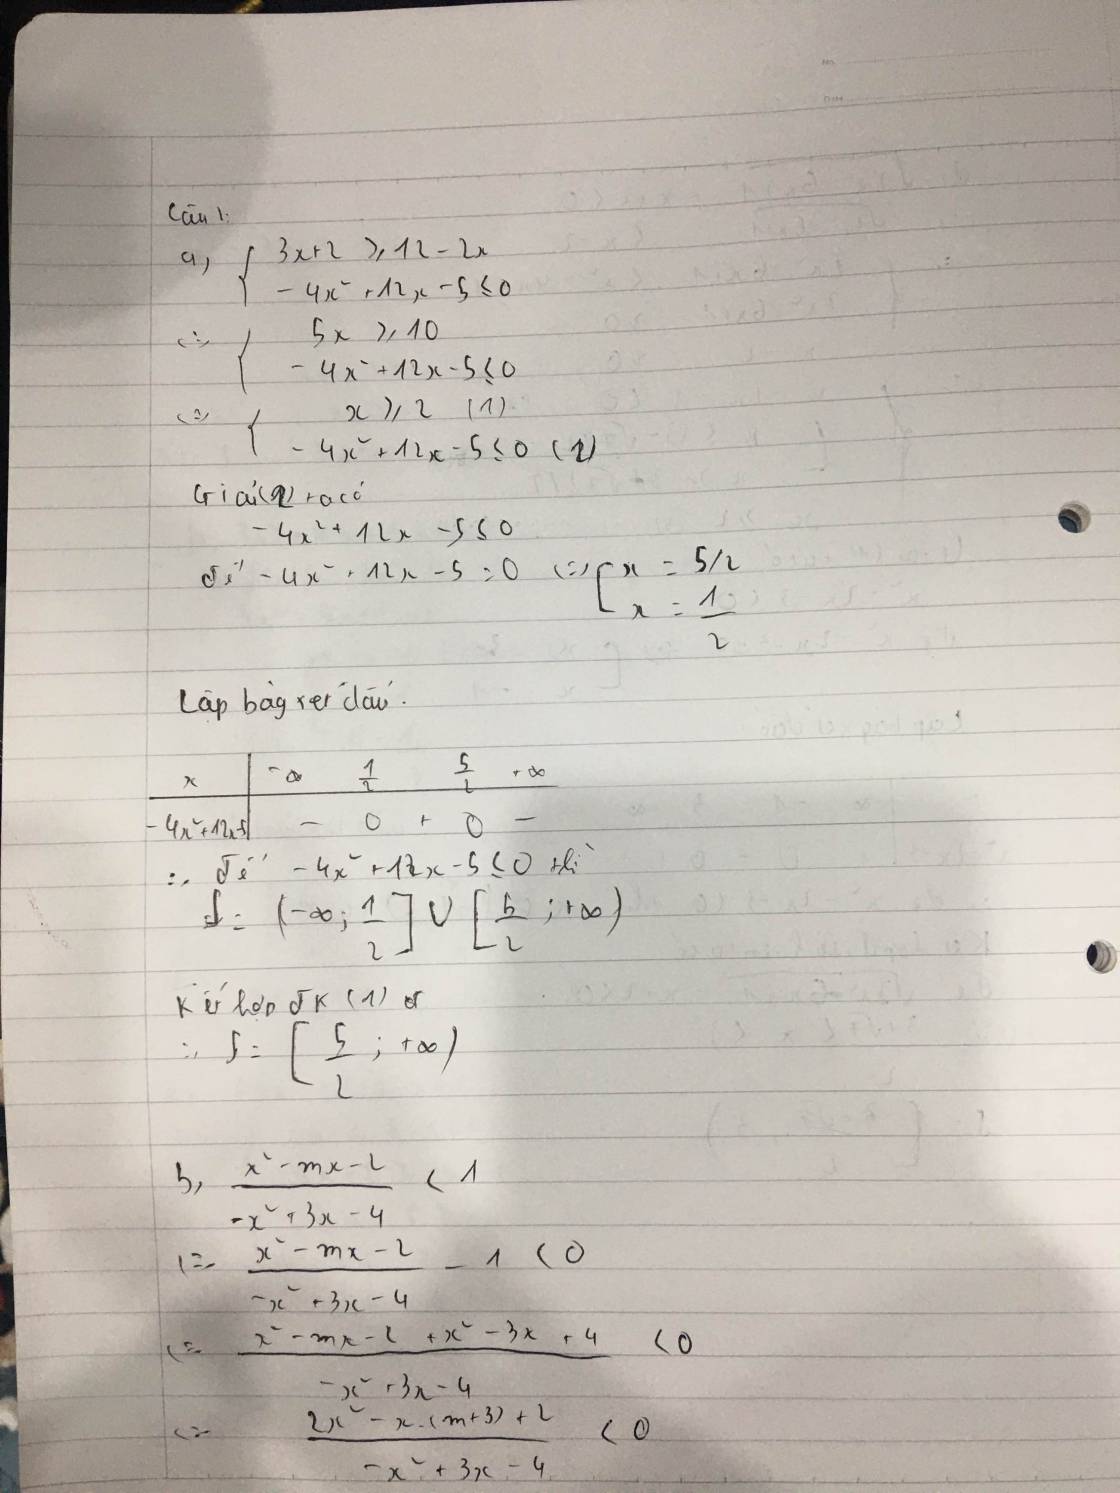 Câu 1:
a, { 3x+2 ≥ 12-2x
- 4x² + 12x - 5 ≤ 0
<=> { 5x ≥ 10
- 4x² + 12x - 5 ≤ 0
<=> { x ≥ 2 (1)
- 4x² + 12x - 5 ≤ 0 (2)
Giải (2) ta có
- 4x² + 12x - 5 ≤ 0
Để - 4x² + 12x - 5 = 0 <=> [ x = 5/2
x = 1/2
Lập bảg xét dấu.
x | -∞ 1/2 5/2 +∞
- 4x² + 12x-5 | - 0 + 0 -
∴ Để - 4x² + 12x - 5 ≤ 0 thì
S = (-∞; 1/2] ∪ [5/2; +∞)
Kết hợp ĐK (1)
∴ S = [5/2; +∞)
b, (x² - mx - 2)/(-x² + 3x - 4) < 1
<=> (x² - mx - 2)/(-x² + 3x - 4) - 1 < 0
<=> (x² - mx - 2 + x² - 3x + 4)/(-x² + 3x - 4) < 0
<=> (2x² - x.(m+3) + 2)/(-x² + 3x - 4) < 0